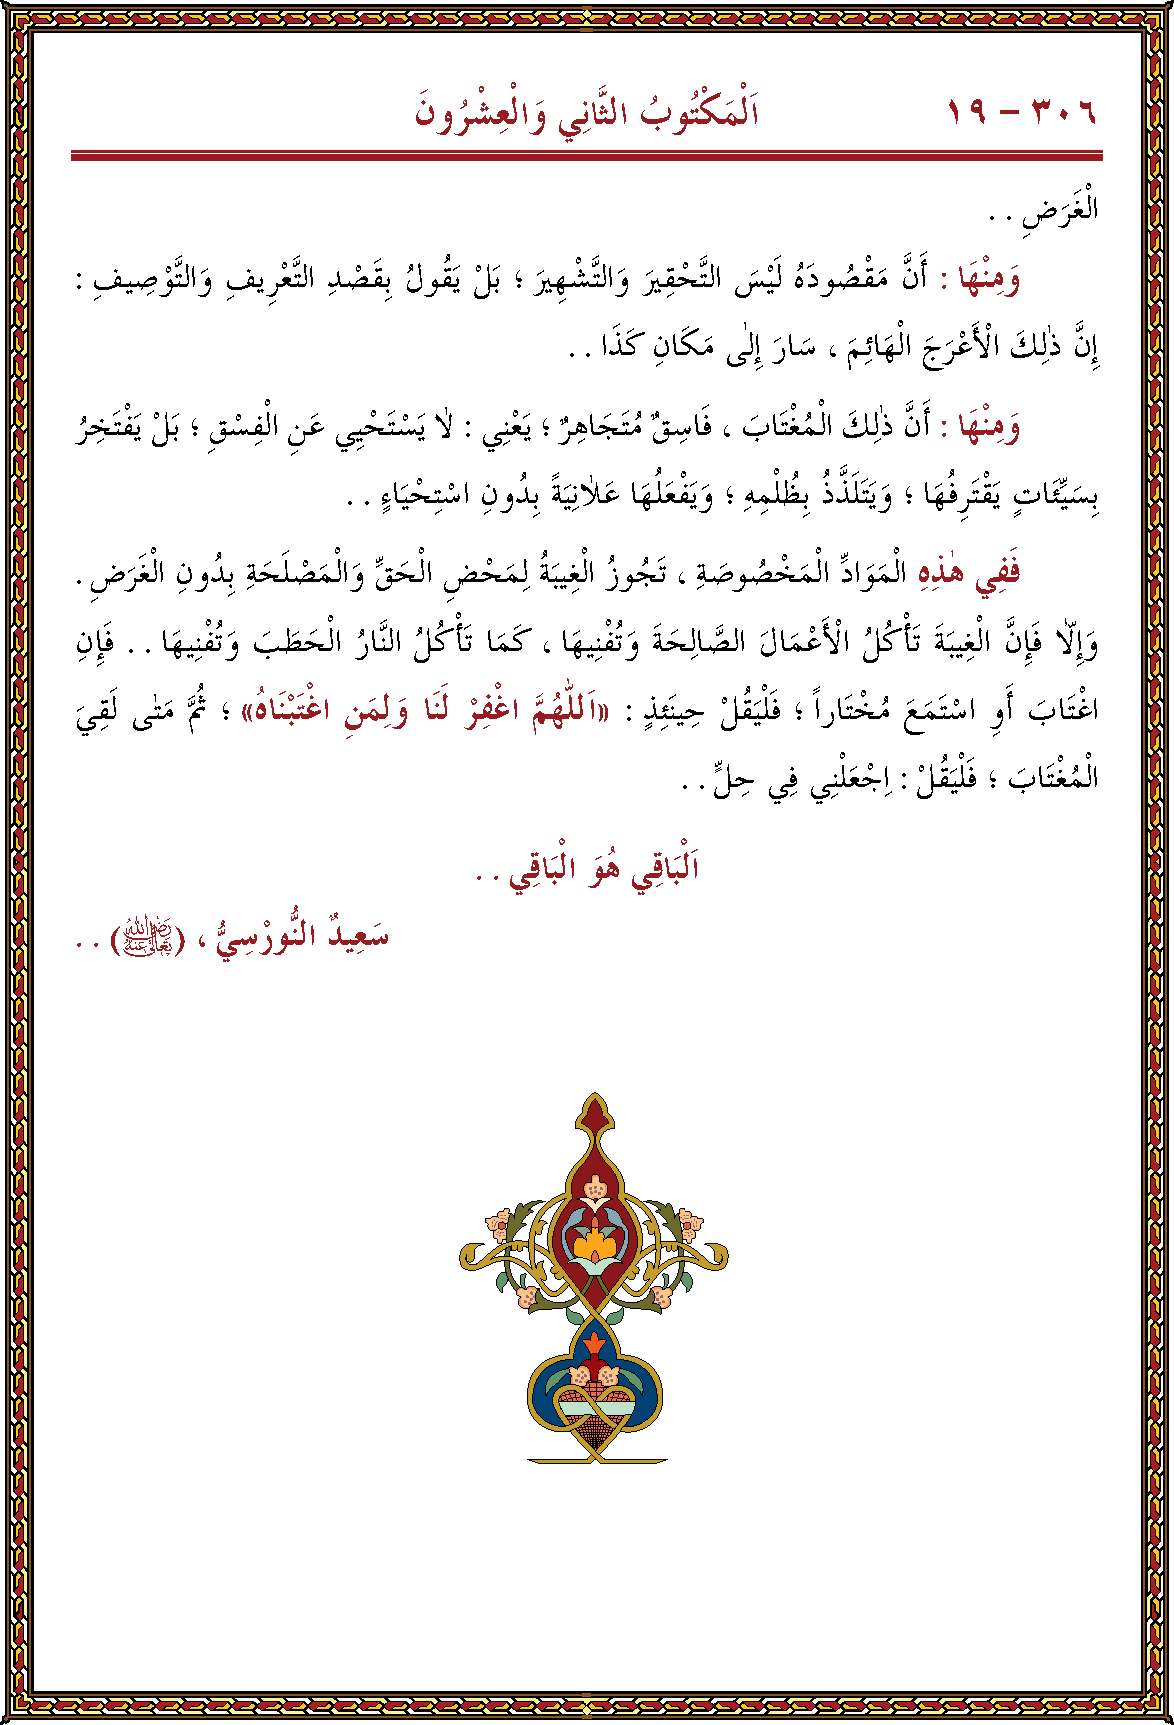 ٣٠٦ - ١٩ اَلْمَكْتُوبُ الثَّانِي وَالْعِشْرُونَ
الْغَرَضِ . .
وَمِنْهَا : أَنَّ مَقْصُودَهُ لَيْسَ التَّحْقِيرَ وَالتَّشْهِيرَ ؛ بَلْ يَقُولُ بِقَصْدِ التَّعْرِيفِ وَالتَّوْصِيفِ :
إِنَّ ذٰلِكَ الْأَعْرَجَ الْهَائِمَ ، سَارَ إِلٰى مَكَانِ كَذَا . .
وَمِنْهَا : أَنَّ ذٰلِكَ الْمُغْتَابَ ، فَاسِقٌ مُتَجَاهِرٌ ؛ يَعْنِي : لَا يَسْتَحْيِي عَنِ الْفِسْقِ ؛ بَلْ يَفْتَخِرُ
بِسَيِّئَاتٍ يَقْتَرِفُهَا ؛ وَيَتَلَذَّذُ بِظُلْمِهِ ؛ وَيَفْعَلُهَا عَلَانِيَةً بِدُونِ اسْتِحْيَاءٍ . .
فَفِي هٰذِهِ الْمَوَادِّ الْمَخْصُوصَةِ ، تَجُوزُ الْغِيبَةُ لِمَحْضِ الْحَقِّ وَالْمَصْلَحَةِ بِدُونِ الْغَرَضِ .
وَإِلَّا فَإِنَّ الْغِيبَةَ تَأْكُلُ الْأَعْمَالَ الصَّالِحَةَ وَتُفْنِيهَا ، كَمَا تَأْكُلُ النَّارُ الْحَطَبَ وَتُفْنِيهَا . . فَإِنِ
اغْتَابَ أَوِ اسْتَمَعَ مُخْتَاراً ؛ فَلْيَقُلْ حِينَئِذٍ : «اَللّٰهُمَّ اغْفِرْ لَنَا وَلِمَنِ اغْتَبْنَاهُ» ؛ ثُمَّ مَتٰى لَقِيَ
الْمُغْتَابَ ؛ فَلْيَقُلْ : اِجْعَلْنِي فِي حِلٍّ . .
اَلْبَاقِي هُوَ الْبَاقِي . .
سَعِيدٌ النُّورْسِيُّ ، (رضي الله تعالى عنه) . .